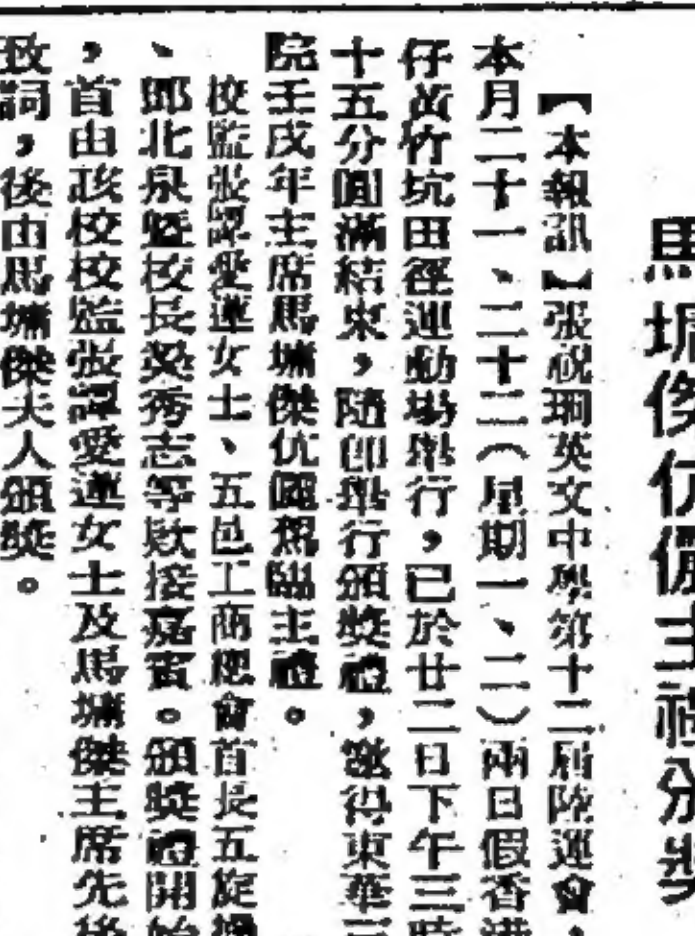 馬塘傑伉儷主禮分獎
【本報訊】張祝珊英文中學第十二屆陸運會，
本月二十一、二十二（星期一、二）兩日假香港
仔黃竹坑田徑運動場舉行，已於廿二日下午三時
十五分圓滿結束，隨即舉行頒獎禮，邀得東華三
院壬戌年主席馬塘傑伉儷駕臨主禮。
校監張譚愛蓮女士、五邑工商總會首長五旋
、鄧北泉暨校長吳秀志等欵接嘉賓。頒獎禮開始
，首由該校校監張譚愛蓮女士及馬塘傑主席先後
致詞，後由馬塘傑夫人頒獎。